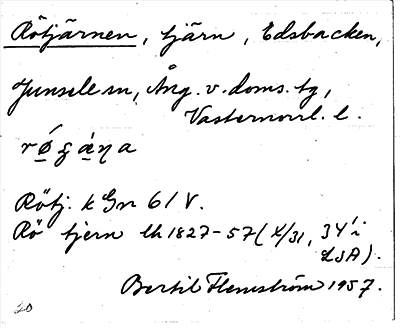 Rötjärnen, tjärn, Edsbacken,
Junsele sn, Ång. v. doms. tg,
Västernorrl. l.
Rötj. k Gn 61 V.
Rö tjern lh 1827-57 (X/31, 34 i
LSA).
Bertil Flemström 1957.
20